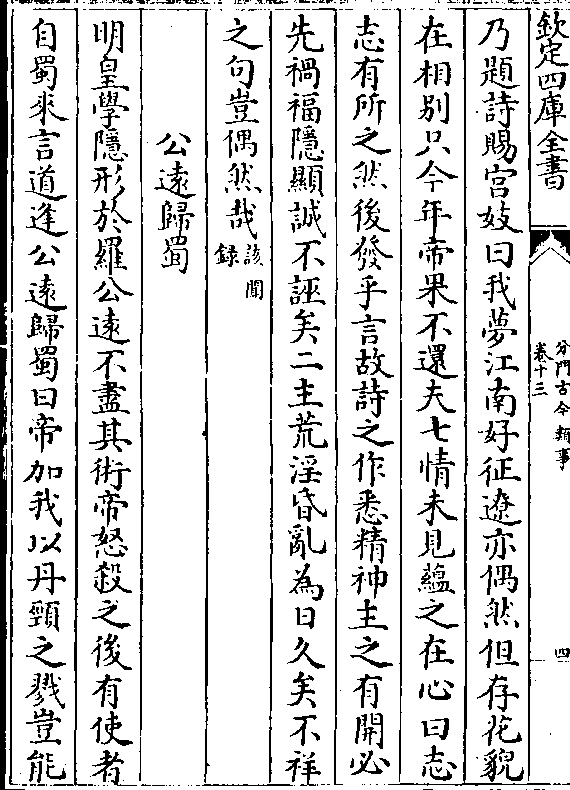 欽定四庫全書
分門古今類事
卷十三
四
乃題詩賜宫妓曰我夢江南好征遼亦偶然但存花貌
在相别只今年帝果不還夫七情未見蘊之在心曰志
志有所之然後發乎言故詩之作悉精神主之有開必
先禍福隱顯誠不誣矣二主荒淫昏亂為日久矣不祥
之句豈偶然哉該聞録
公遠歸蜀
明皇學隱形於羅公遠不盡其術帝怒殺之後有使者
自蜀來言道逢公遠歸蜀曰帝加我以丹頸之戮豈能